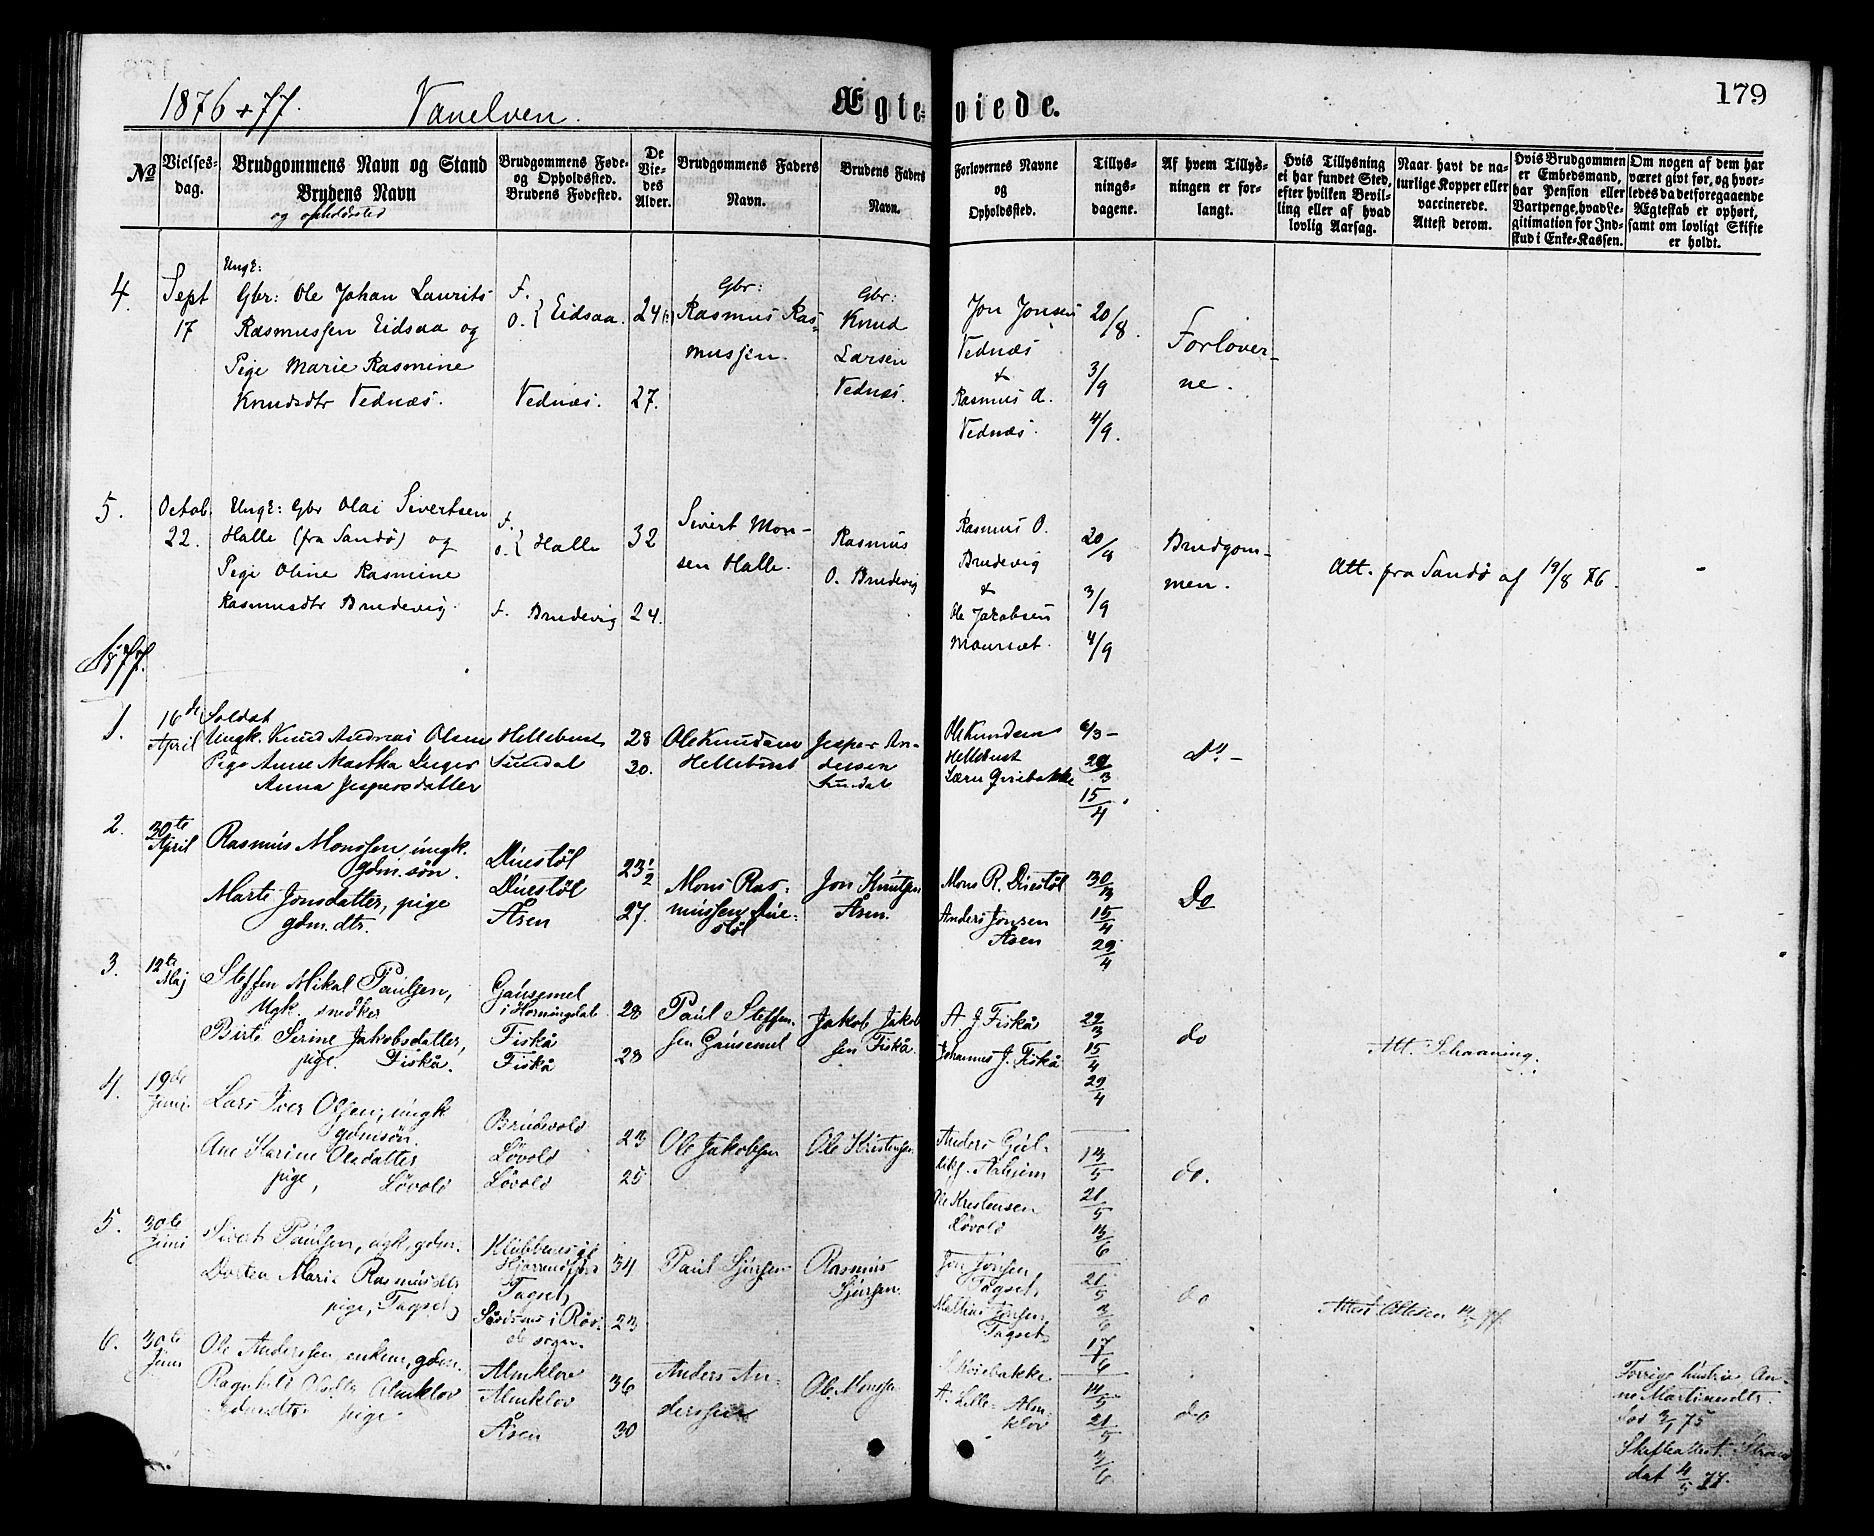 179
1876 + 77. Vanelven. Ægteviede.
№
Vielses-
dag.
Brudgommens Navn og Stand
Brudens Navn
og opholdsted
Brudgommens Føde-
og Opholdssted.
Brudens Fødested.
De
Vie-
des
Alder.
Brudgommens Faders
Navn.
Brudens Faders
Navn.
Forlovernes Navne
og
Opholdssted.
Tillys-
nings-
dagene.
Af hvem Tillys-
ningen er for-
langt.
Hvis Tillysning
ei har fundet Sted,
efter hvilken Bevil-
ling eller af hvad
lovlig Aarsag.
Naar havt de na-
turlige Kopper eller
vaccinerede.
Attest derom.
Hvis Brudgommen
er Embedsmand,
har Pension eller
Vartpenge, hvad Le-
gitimation for Ind-
skud i Enke-Kassen.
Om nogen af dem har
været givt før, og hvor-
ledes da det foregaaende
Ægteskab er ophørt,
samt om lovligt Skifte
er holdt.
4.
Sept
17
Ungk:
Gbr: Ole Johan Laurits
Rasmussen Eidsaa og
Pige Marie Rasmine
Knudsdtr Vednæs.
F.
O. } Eidsaa.
Vednæs.
24
27.
Gbr:
Rasmus Ras-
mussen.
Gbr:
Knud
Larsen
Vednæs.
Jon Jonsen
Vednæs
&
Rasmus A.
Vednæs.
20/8.
3/9
4/9.
Forlover-
ne.
5.
Octob.
22.
Ungk: Gbr Olai Sivertsen
Halle (fra Sandø) og
Pige Oline Rasmine
Rasmusdtr Brudevig.
F.
O. { Halle
F. Brudevig
32
24.
Sivert Mon-
sen Halle.
Rasmus
O. Brudevig
Rasmus O.
Brudevig
&
Ole Jakobsen
Maurset.
20/8
3/9
4/9
Brudgom-
men.
Att. fra Sandø af 19/8 76.
1877.
1.
16de
April
Soldat
Ungk. Knud Andreas Olsen
Pige Anne Martha Inger
Anna Jespersdatter
Hellebust
Sundal
28
30.
Ole Knudsen
Hellebust
Jesper An-
dersen
Sundal
Ole Knudsen
Hellebust
6/3 -
29/3
15/4.
do -
2.
30te
April
Rasmus Monssen ungk.
gdm.søn.
Marte Jonsdatter, pige
gdm.dtr.
Duestøl
Duestøl
Åsen
23 1/2
27.
Mons Ras-
mussen Due-
støl
Jon Knutsen
Åsen.
Mons R. Duestøl
Anders Jonsen
Åsen
30/3
15/4
29/4
do
3.
12te
Maj
Steffen Mikal Paulsen,
Ugk. snedker
Birte Serine Jakobsdatter,
pige. Fiskå.
Gausemel
i Horningdal
Fiskå
Fiskå
28
28
Paul Steffen-
sen Gausemel
Jakob Jakob
sen Fiskå.
A. J. Fiskå
Johannes J. Fiskå
29/3
15/4
29/4
do
Att. Schaaning.
4.
19de
Juni.
Lars Iver Olsen, ungk
gdmsøn.
Ane Karine Olsdatter
pige, Løvold
Brudevold
Løvold
Løvold
23
25
Ole Jakobsen
Ole Kristensen
Anders
Aahjem
Ole Kristensen
Løvold
13/5
21/5
13/6
do.
5.
30te
Juni
Sivert Paulsen, ugk, gdm.
Dorten Marie Rasmusdtr
pige, Tagset
Hjørundfjord
Tagset,
sogn.
34
23
Paul Sjursen
Rasmus
Sjursen.
Jon Jonsen,
Tagset,
Mathias Jonsen,
Tagset
21/5
3/6
17/6
do
6.
30te
Juni
Ole Anderssen enkem, gdm.
Ragnhild Olsdtr Almklov
gdmdtr pige.
Almklov
Almklov
Åsen
36
30
Anders An-
derssen
Ole Monssen
A. Lille- Alm-
klov
14/5
21/5
3/6
do
Forrige hustrue, An-
ne Martinusdtr.
død 3/1 75
Skifteattest
dat 4/5 77.